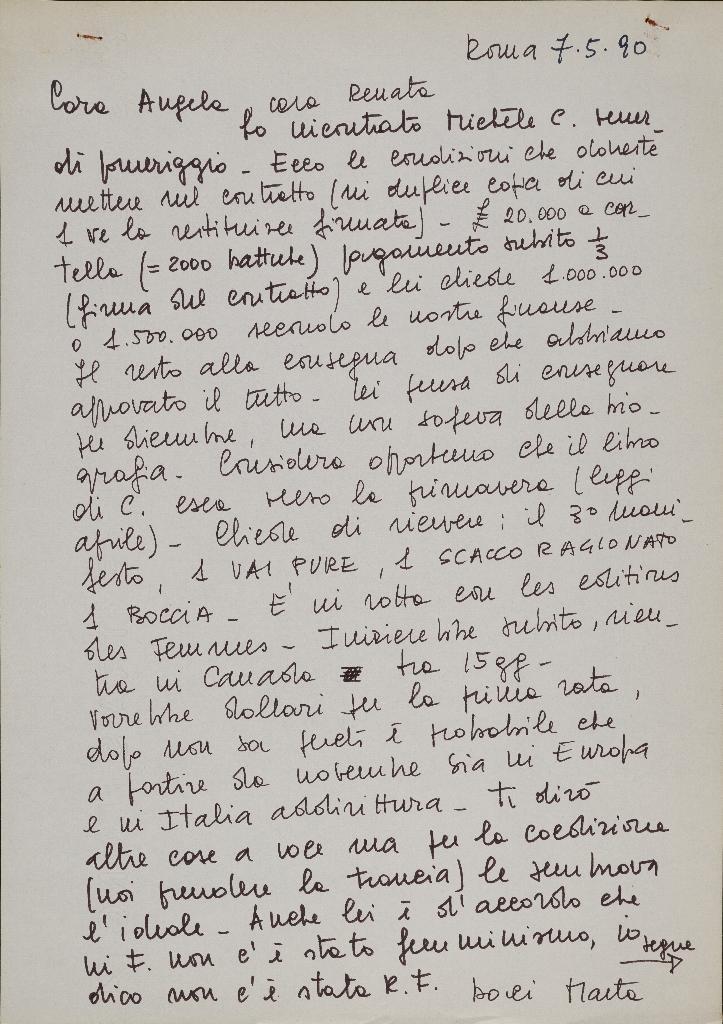 Roma 7.5.90
Cara Angela, cara Renata
ho incontrato Michèle C. vener_
dì pomeriggio_ Ecco le condizioni che dovreste
mettere nel contratto (in duplice copia di cui
1 ve la restituisce firmata)_ £ 20.000 a car_
tella (= 2000 battute) pagamento subito 1/3
(firma del contratto) e lei chiede 1.000.000
o 1.500.000 secondo le nostre finanze_
Il resto alla consegna dopo che abbiamo
approvato il tutto_ lei pensa di consegnare
per dicembre, ma non sapeva della bio_
grafia_ Considera opportuno che il libro
di C. esca verso la primavera (leggi
aprile)_ Chiede di ricevere: il 3° Mani_
festo, 1 VAI PURE, 1 SCACCO RAGIONATO
1 BOCCIA_ E' in rotta con les editions
des Femmes_ Inizierebbe subito, rien_
tra in Canada tra 15 gg_
Vorrebbe dollari per la prima rata,
dopo non sa perché è probabile che
a partire da novembre sia in Europa
e in Italia addirittura_ Ti dirò
altre cose a voce ma per la coedizione
(noi prendere la trancia) le sembrava
l'ideale_ Anche lei è d'accordo che
in F. non c'è stato femminismo, io
dico non c'è stata R.F.
segue
baci Marta